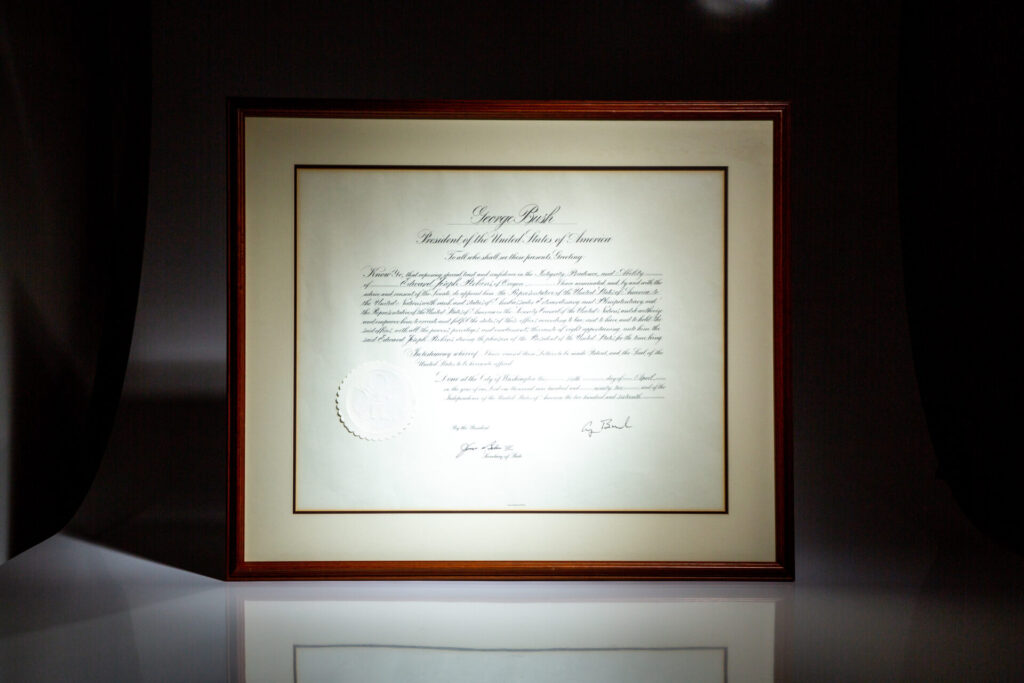 George Bush
President of the United States of America
To all who shall see these presents, Greeting:
Know Ye, that reposing special trust and confidence in the Integrity, Prudence, and Ability
of Edward Joseph Perkins, of Oregon I have nominated, and, by and with the
advice and consent of the Senate, do appoint him the Representative of the United States of America to
the United Nations, with rank and status of Ambassador Extraordinary and Plenipotentiary, and
the Representative of the United States of America in the Security Council of the United Nations, and do authorize
and empower him to execute and fulfil the duties of this office according to law, and to have and to hold the
said office, with all the powers, privileges, and emoluments thereunto of right appertaining, unto him the
said Edward Joseph Perkins, during the pleasure of the President of the United States for the time being.
In testimony whereof, I have caused these Letters to be made Patent, and the Seal of the
United States to be hereunto affixed.
Done at the City of Washington this day of April
in the year of our Lord one thousand nine hundred and ninety-two and of the
Independence of the United States of America the two hundred and sixteenth
By the President:
Secretary of State